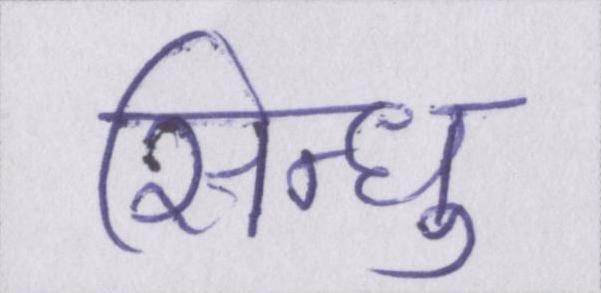 सिन्धु